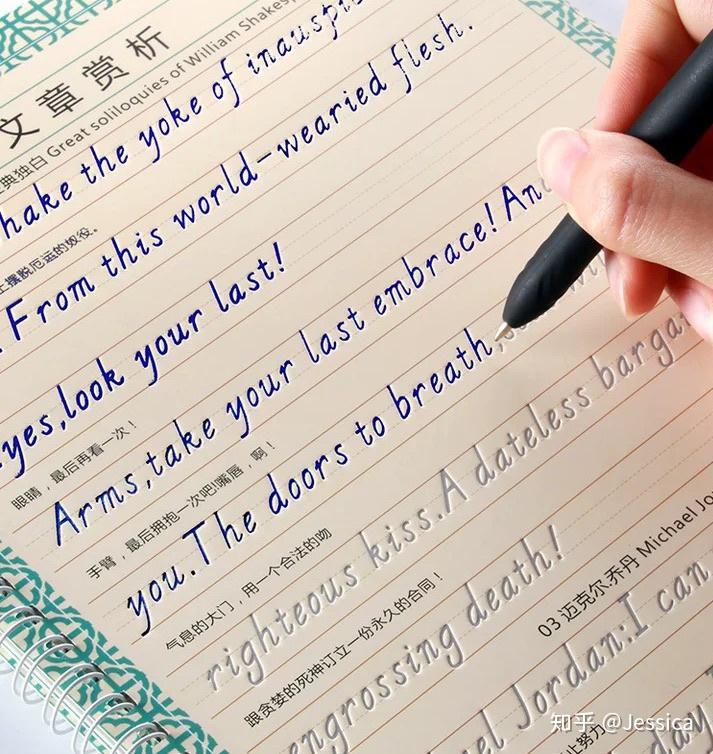 文章赏析
典独白 Great soliloquies of William Shakesp
hake the yoke of inauspi
上摆脱厄运的奴役。
From this world-wearied flesh.
yes,look your last!
眼睛，最后再看一次！
Arms,take your last embrace! An
手臂，最后拥抱一次吧!嘴唇，啊！
you.The doors to breath,
气息的大门，用一个合法的吻
righteous kiss.A dateless barga
跟贪婪的死神订立一份永久的合同！
engrossing death!
03 迈克尔.乔丹 Michael Jo
el Jordan:I can
努力
知乎 @Jessica